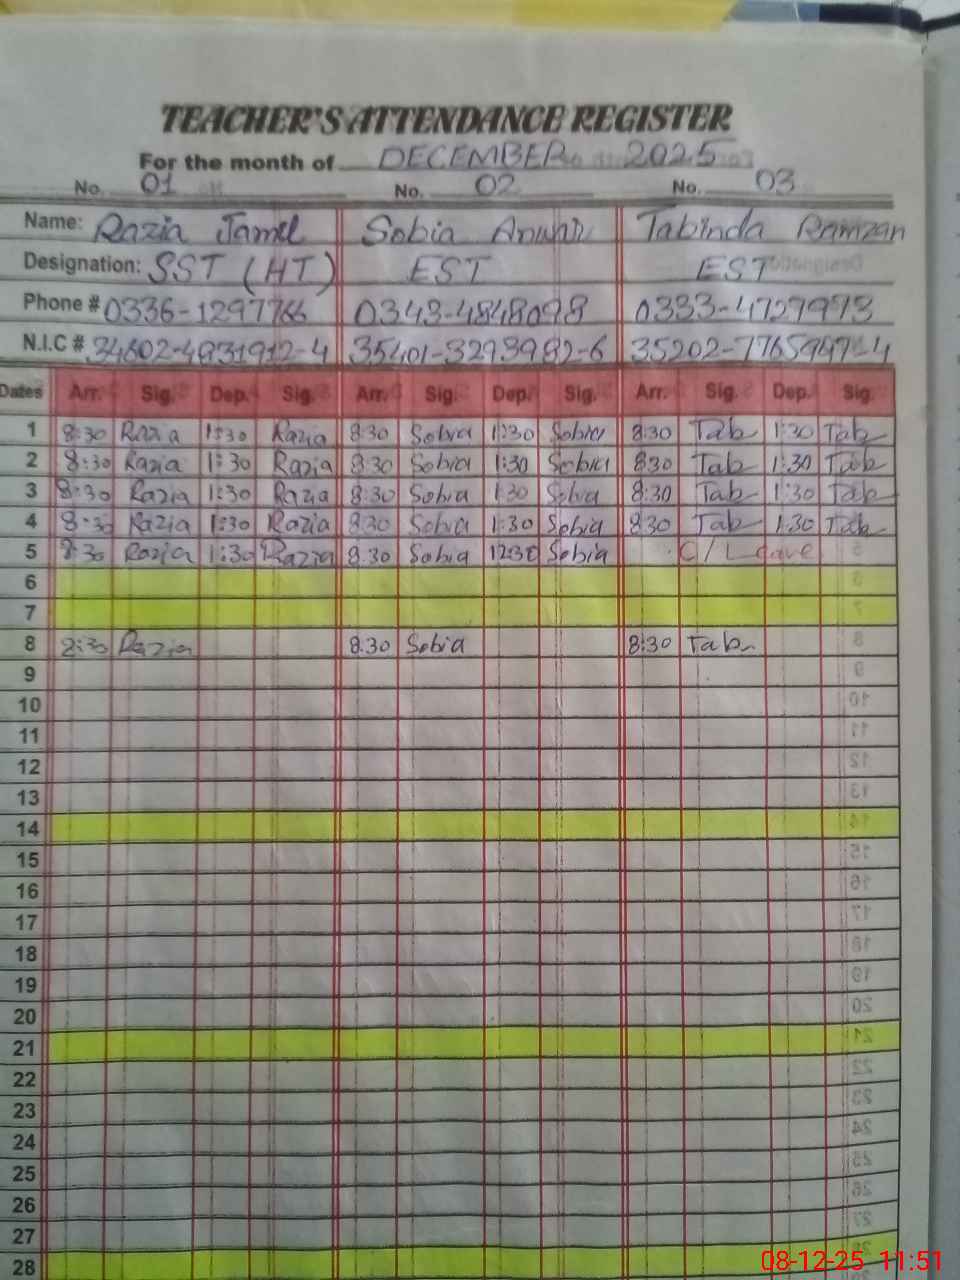 TEACHER'S ATTENDANCE REGISTER
For the month of DECEMBER 2025
No. 01 No. 02 No. 03
Name: Razia Jamil Sobia Anwar Tabinda Ramzan
Designation: SST (HT) EST EST
Phone # 0336-1297766 0343-4848098 0333-4727973
N.I.C # 34602-4931912-4 35401-3293982-6
Dates Arr. Sig. Dep. Sig. Arr. Sig. Dep. Sig. Arr. Sig. Dep. Sig.
1 8:30 Razia 1:30 Razia 8:30 Sobia 1:30 Sobia 8:30 Tab 1:30 Tab
2 8:30 Razia 1:30 Razia 8:30 Sobia 1:30 Sobia 830 Tab 1:30 Tab
3 8:30 Razia 1:30 Razia 8:30 Sobia 1:30 Sobia 8:30 Tab 1:30 Tab
4 8:30 Razia 1:30 Razia 8:30 Sobia 1:30 Sobia 830 Tab 1:30 Tab
5 8:30 Razia 1:30 Razia 8:30 Sobia 1230 Sobia C/Leave
6
7
8 8:30 Razia 8.30 Sobia 8:30 Tab
9
10
11
12
13
14
15
16
17
18
19
20
21
22
23
24
25
26
27
28
08-12-25 11:51